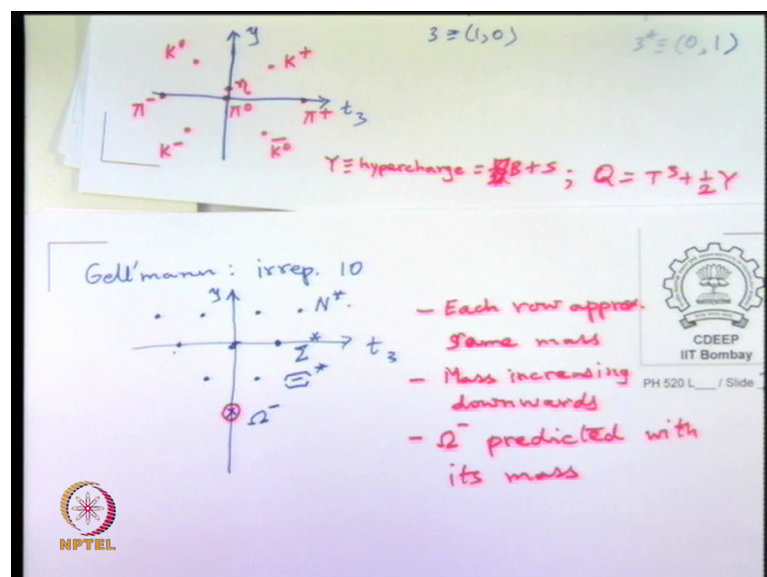 y
3 ≡ (1,0)
3* ≡ (0,1)
K⁰
K⁺
η
π⁻
π⁰
π⁺
t₃
K⁻
K̄⁰
Y ≡ hypercharge = B+S ; Q = T³ + ½ Y
Gell'mann : irrep. 10
y
N*
Σ*
t₃
Ξ*
Ω⁻
- Each row approx. same mass
- Mass increasing downwards
- Ω⁻ predicted with its mass
CDEEP
IIT Bombay
PH 520 L___ / Slide
NPTEL